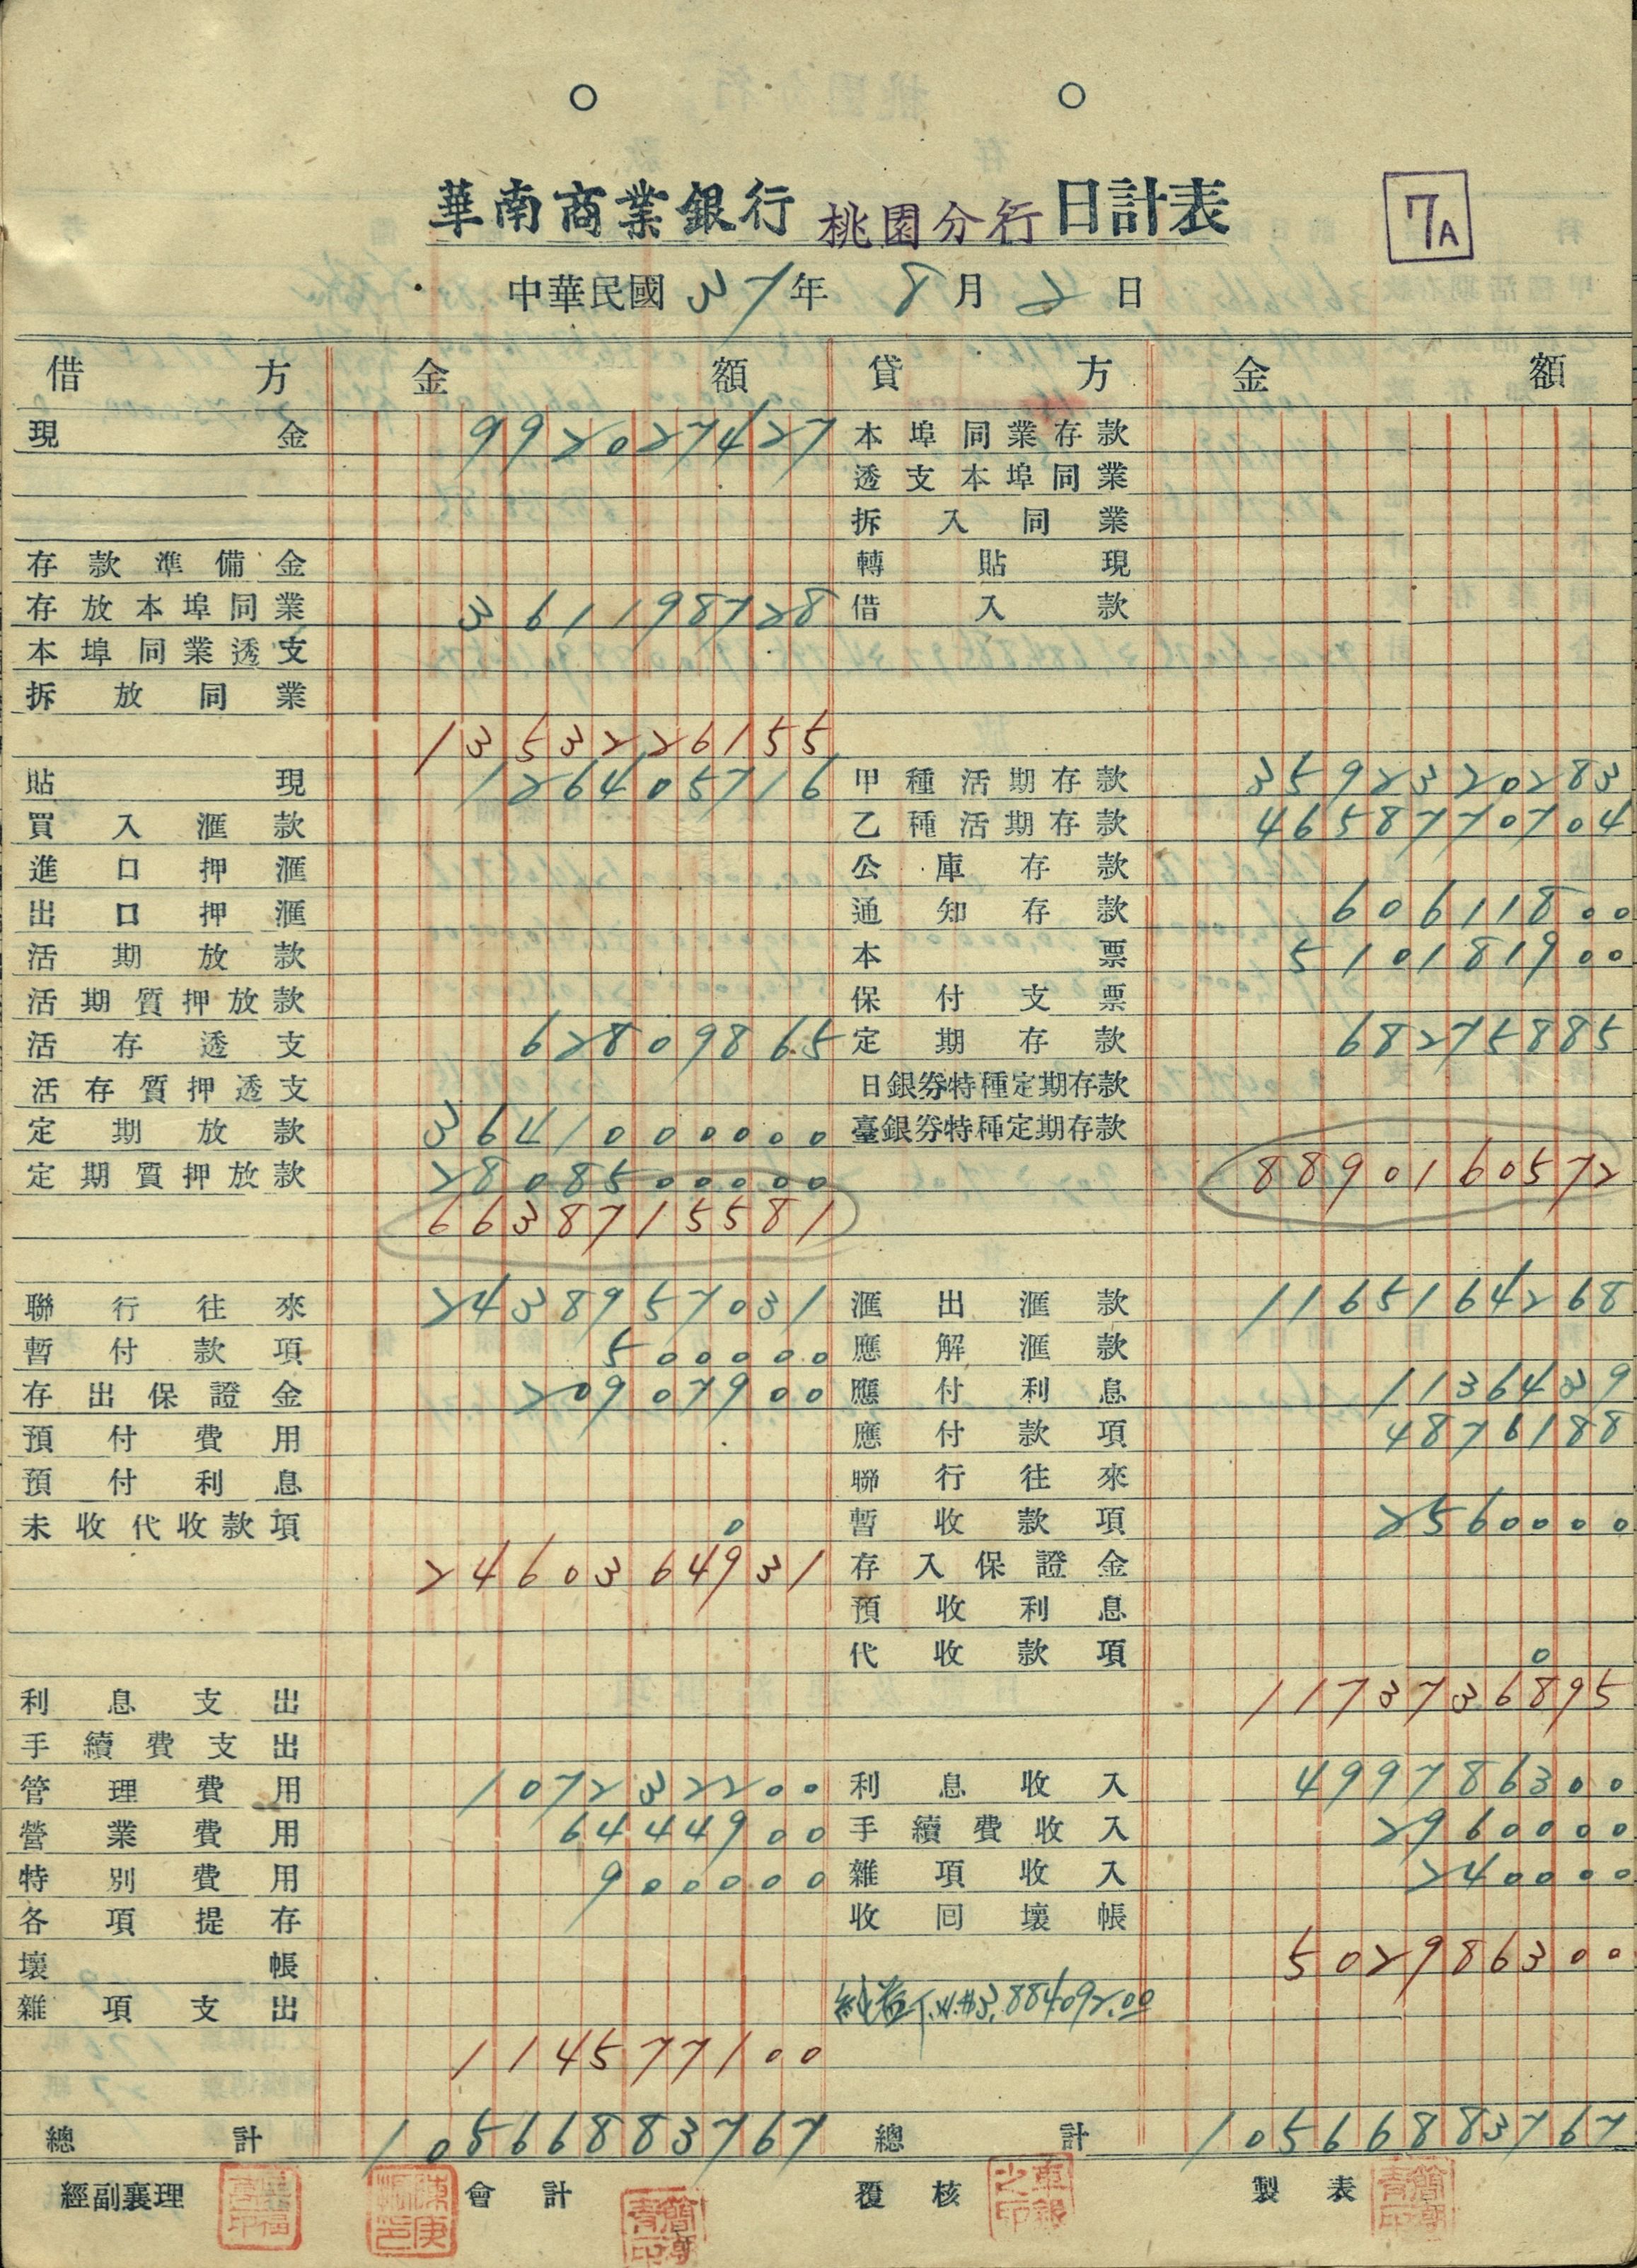 華南商業銀行 桃園分行 日計表
7A
中華民國 37 年 8 月 2 日
借方 金額 貸方 金額
現金 992027427 本埠同業存款
透支本埠同業
拆入同業
存款準備金 轉貼現
存放本埠同業 361198728 借入款
本埠同業透支
拆放同業
1353226155
貼現 126405716 甲種活期存款 3592320283
買入滙款 乙種活期存款 4658770704
進口押滙 公庫存款
出口押滙 通知存款 60611800
活期放款 本票 510181900
活期質押放款 保付支票
活存透支 62809865 定期存款 68275885
活存質押透支 日銀券特種定期存款
定期放款 3641000000 臺銀券特種定期存款
定期質押放款 2808500000 8890160572
6638715581
聯行往來 2438957031 滙出滙款 1165164268
暫付款項 500000 應解滙款
存出保證金 20907900 應付利息 1136439
預付費用 應付款項 4876188
預付利息 聯行往來
未收代收款項 0 暫收款項 2560000
2460364931 存入保證金
預收利息
代收款項 0
利息支出 1173736895
手續費支出
管理費用 107232200 利息收入 499786300
營業費用 6444900 手續費收入 2960000
特別費用 900000 雜項收入 240000
各項提存 收回壞帳
壞帳 502986300
雜項支出 純益T.W.#3,884,092.00
114577100
總計 10566883767 總計 10566883767
經副襄理 會計 覆核 製表